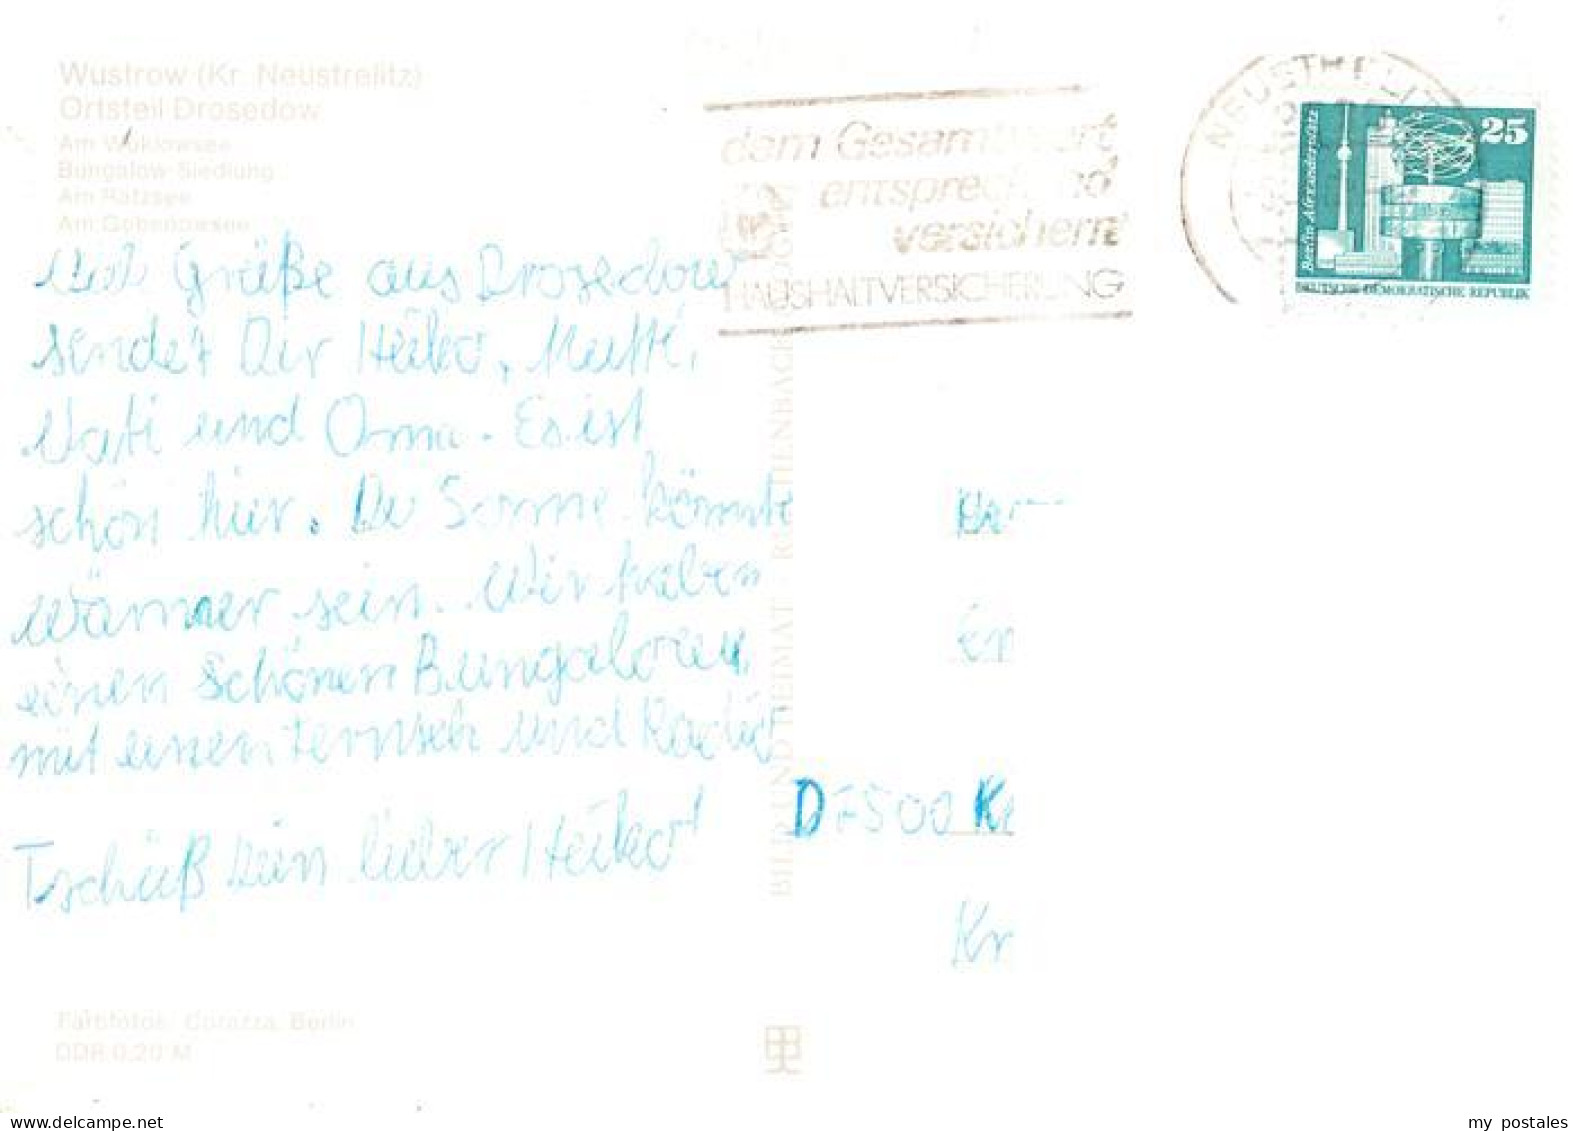 Wustrow (Kr. Neustrelitz)
Ortsteil Drosedow
Am Woklowsee
Bungalow-Siedlung
Am Rätzsee
Am Gobenowsee
Grüße aus Drosedow
sendet Dir Heiko, Mutti,
Vati und Oma. Es ist
schön hier. Die Sonne könnte
wärmer sein. Wir haben
einen schönen Bungalow
mit einen Fernseh und Radio
Tschüß Dein lieber Heiko
Farbfotos: Corazza, Berlin
DDR 0,20 M
BILD UND HEIMAT REICHENBACH
dem Gesamtwert
entsprechend
versichern
HAUSHALTVERSICHERUNG
NEUSTRELITZ
25
Berlin Alexanderplatz
DEUTSCHE DEMOKRATISCHE REPUBLIK
D 7500
Kr
my postales